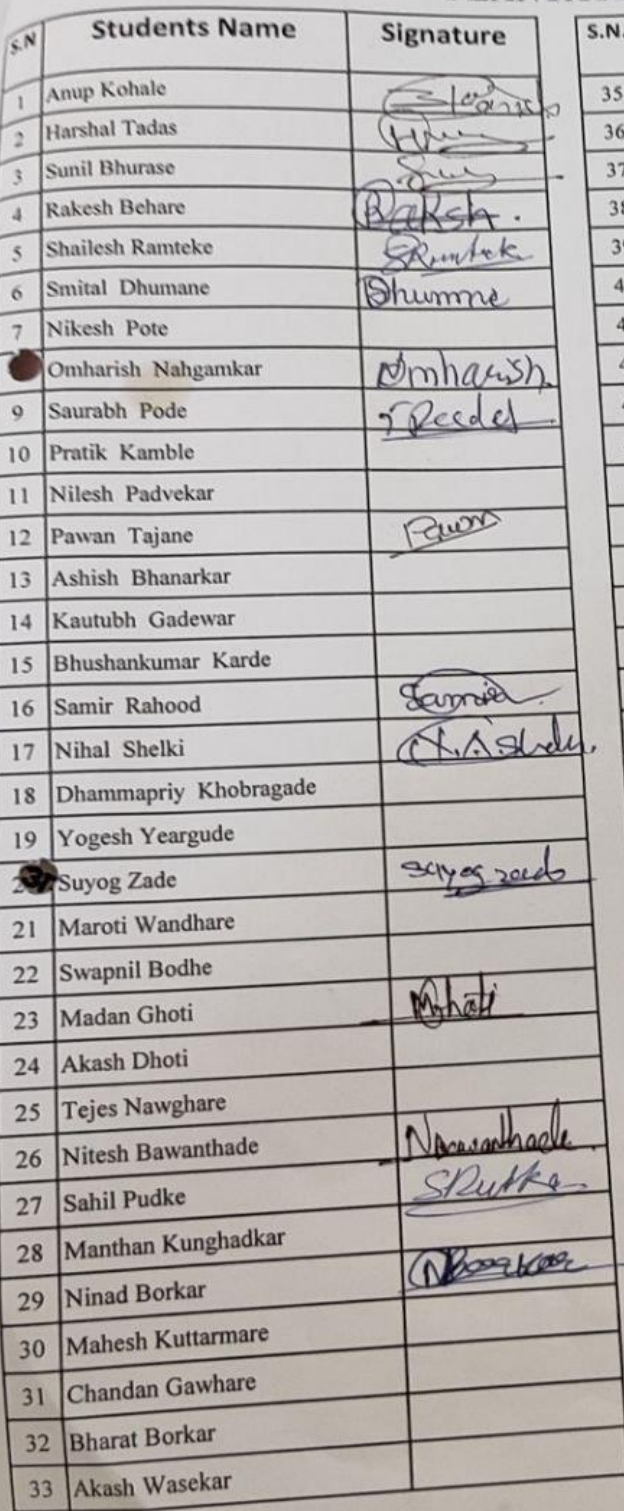 S.N Students Name Signature S.N.
1 Anup Kohale 35
2 Harshal Tadas 36
3 Sunil Bhurase 37
4 Rakesh Behare Raksh. 38
5 Shailesh Ramteke SRamtek 39
6 Smital Dhumane Dhumne 4
7 Nikesh Pote 4
Omharish Nahgamkar Omharish 4
9 Saurabh Pode
10 Pratik Kamble
11 Nilesh Padvekar
12 Pawan Tajane Pawan
13 Ashish Bhanarkar
14 Kautubh Gadewar
15 Bhushankumar Karde
16 Samir Rahood Samir
17 Nihal Shelki
18 Dhammapriy Khobragade
19 Yogesh Yeargude
2 Suyog Zade Suyog zade
21 Maroti Wandhare
22 Swapnil Bodhe
23 Madan Ghoti
24 Akash Dhoti
25 Tejes Nawghare
26 Nitesh Bawanthade
27 Sahil Pudke
28 Manthan Kunghadkar
29 Ninad Borkar
30 Mahesh Kuttarmare
31 Chandan Gawhare
32 Bharat Borkar
33 Akash Wasekar